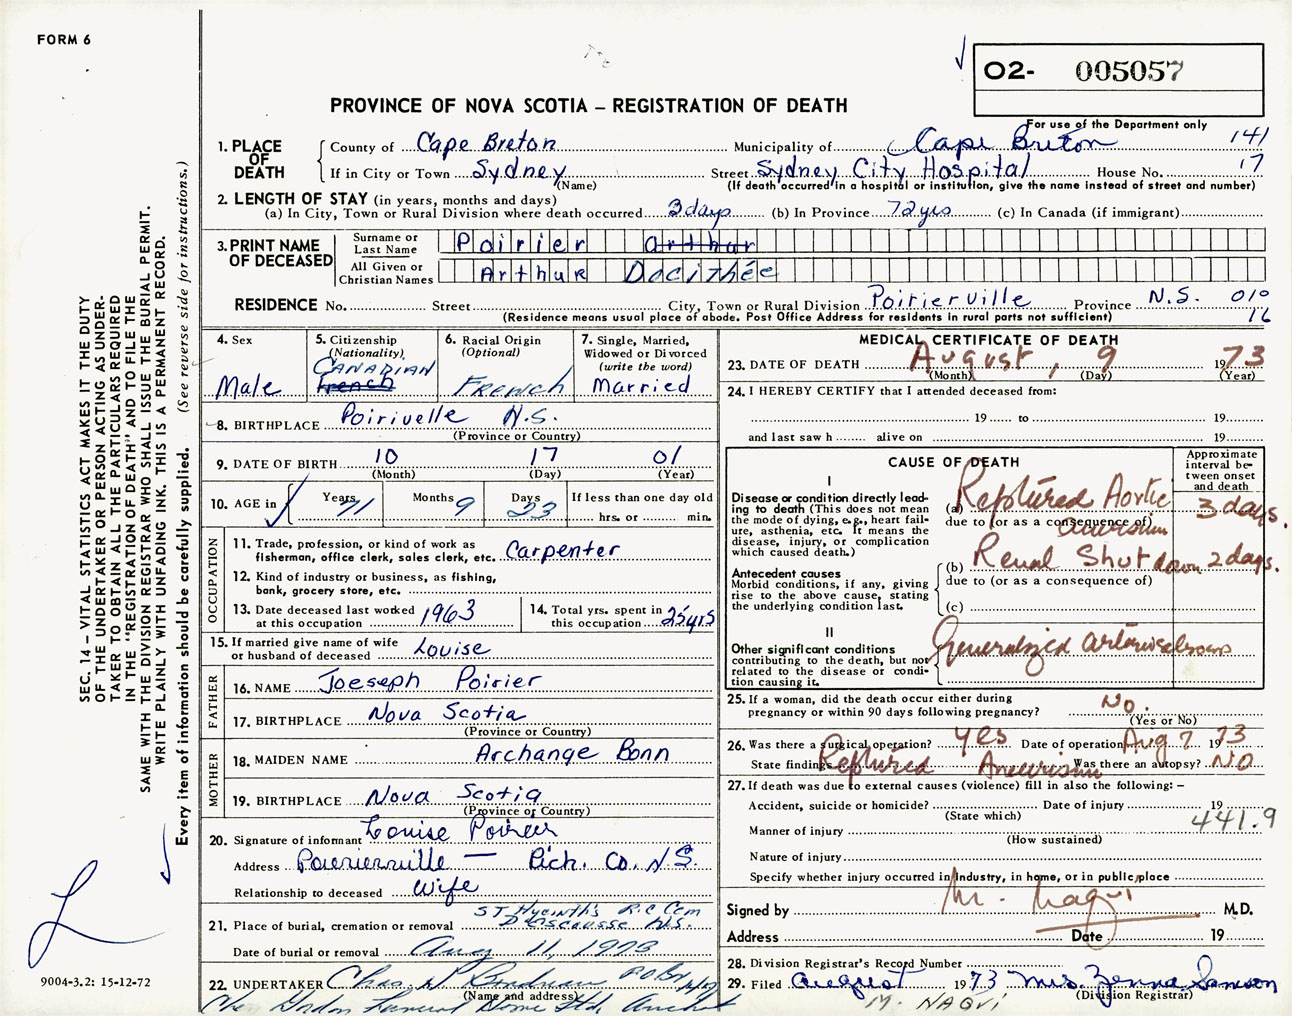 FORM 6
O2- 005057
PROVINCE OF NOVA SCOTIA – REGISTRATION OF DEATH
For use of the Department only
1. PLACE OF DEATH
County of Cape Breton Municipality of Cape Breton 141
If in City or Town Sydney Street Sydney City Hospital House No. 17
(Name) (If death occurred in a hospital or institution, give the name instead of street and number)
2. LENGTH OF STAY (in years, months and days)
(a) In City, Town or Rural Division where death occurred 3 days (b) In Province 72 yrs (c) In Canada (if immigrant)
3. PRINT NAME OF DECEASED
Surname or Last Name Poirier Arthur
All Given or Christian Names Arthur Docithée
RESIDENCE No. Street City, Town or Rural Division Poirierville Province N.S. 010
(Residence means usual place of abode. Post Office Address for residents in rural parts not sufficient) 16
4. Sex Male
5. Citizenship (Nationality) CANADIAN French
6. Racial Origin (Optional) FRENCH
7. Single, Married, Widowed or Divorced (write the word) Married
8. BIRTHPLACE Poirivelle N.S.
(Province or Country)
9. DATE OF BIRTH 10 17 01
(Month) (Day) (Year)
10. AGE in Years 71 Months 9 Days 23 If less than one day old
hrs. or min.
OCCUPATION
11. Trade, profession, or kind of work as fisherman, office clerk, sales clerk, etc. Carpenter
12. Kind of industry or business, as fishing, bank, grocery store, etc.
13. Date deceased last worked at this occupation 1963
14. Total yrs. spent in this occupation 25 yrs
15. If married give name of wife or husband of deceased Louise
FATHER
16. NAME Joeseph Poirier
17. BIRTHPLACE Nova Scotia
(Province or Country)
MOTHER
18. MAIDEN NAME Archange Bonn
19. BIRTHPLACE Nova Scotia
(Province or Country)
20. Signature of informant Louise Poirier
Address Pourierville — Rich. Co. N.S.
Relationship to deceased wife
21. Place of burial, cremation or removal ST Hycinth's R.C Cem
D'Escousse N.S.
Date of burial or removal Aug 11, 1973
22. UNDERTAKER Chas.
(Name and address)
MEDICAL CERTIFICATE OF DEATH
23. DATE OF DEATH August, 9 1973
(Month) (Day) (Year)
24. I HEREBY CERTIFY that I attended deceased from:
19 to 19
and last saw h alive on 19
CAUSE OF DEATH
Approximate interval between onset and death
I
Disease or condition directly leading to death (This does not mean the mode of dying, e.g., heart failure, asthenia, etc. It means the disease, injury, or complication which caused death.)
(a) Reptured Aortic 3 days.
due to (or as a consequence of) aneurism
Antecedent causes
Morbid conditions, if any, giving rise to the above cause, stating the underlying condition last.
(b) Renal Shut down 2 days.
due to (or as a consequence of)
(c)
II
Other significant conditions contributing to the death, but not related to the disease or condition causing it.
Generalized arteriosclerosis
25. If a woman, did the death occur either during pregnancy or within 90 days following pregnancy? No.
(Yes or No)
26. Was there a surgical operation? yes Date of operation Aug 7 1973
State findings Reptured Aneurism Was there an autopsy? NO
27. If death was due to external causes (violence) fill in also the following: –
Accident, suicide or homicide? Date of injury 19
(State which) 441.9
Manner of injury
(How sustained)
Nature of injury
Specify whether injury occurred in industry, in home, or in public place
Signed by M. Naqvi M.D.
Address Date 19
28. Division Registrar's Record Number
29. Filed August 1973 Mrs. Zenna Samson
(Division Registrar)
M. NAQVI
SEC. 14 – VITAL STATISTICS ACT MAKES IT THE DUTY
OF THE UNDERTAKER OR PERSON ACTING AS UNDER-
TAKER TO OBTAIN ALL THE PARTICULARS REQUIRED
IN THE "REGISTRATION OF DEATH" AND TO FILE THE
SAME WITH THE DIVISION REGISTRAR WHO SHALL ISSUE THE BURIAL PERMIT.
WRITE PLAINLY WITH UNFADING INK. THIS IS A PERMANENT RECORD.
Every item of information should be carefully supplied. (See reverse side for instructions.)
9004-3.2: 15-12-72